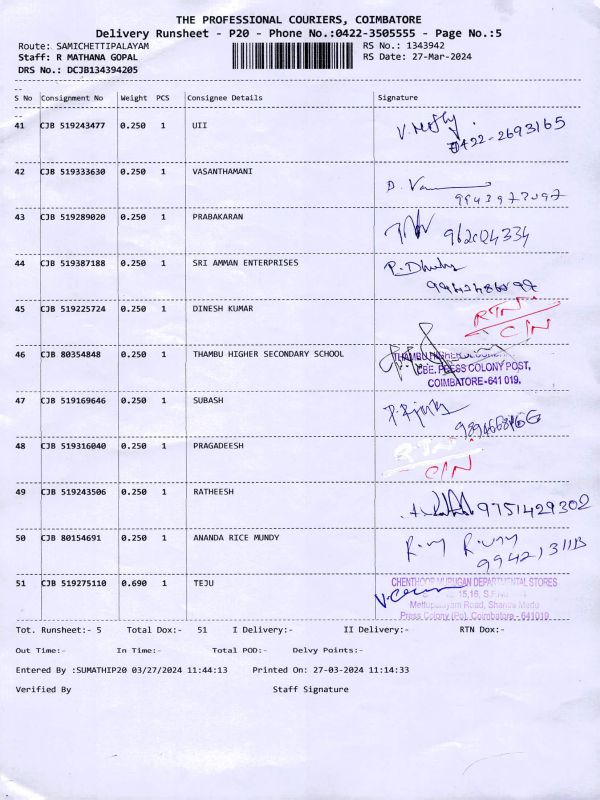 THE PROFESSIONAL COURIERS, COIMBATORE
Delivery Runsheet - P20 - Phone No.:0422-3505555 - Page No.:5
Route: SAMICHETTIPALAYAM
RS No.: 1343942
Staff: R MATHANA GOPAL
RS Date: 27-Mar-2024
DRS No.: DCJB134394205
S No Consignment No Weight PCS Consignee Details Signature
41 CJB 519243477 0.250 1 UII
0422-2693165
42 CJB 519333630 0.250 1 VASANTHAMANI
43 CJB 519289020 0.250 1 PRABAKARAN
44 CJB 519387188 0.250 1 SRI AMMAN ENTERPRISES
45 CJB 519225724 0.250 1 DINESH KUMAR RTN
C/N
46 CJB 80354848 0.250 1 THAMBU HIGHER SECONDARY SCHOOL
CBE. PRESS COLONY POST,
COIMBATORE-641 019.
47 CJB 519169646 0.250 1 SUBASH
48 CJB 519316040 0.250 1 PRAGADEESH RTN
C/N
49 CJB 519243506 0.250 1 RATHEESH 9751429302
50 CJB 80154691 0.250 1 ANANDA RICE MUNDY
51 CJB 519275110 0.690 1 TEJU CHENTHOOR MURUGAN DEPARTMENTAL STORES
15,16,
Mettupalayam Road,
Press Colony (Po), Coimbatore - 641019
Tot. Runsheet:- 5 Total Dox:- 51 I Delivery:- II Delivery:- RTN Dox:-
Out Time:- In Time:- Total POD:- Delvy Points:-
Entered By :SUMATHIP20 03/27/2024 11:44:13 Printed On: 27-03-2024 11:14:33
Verified By Staff Signature